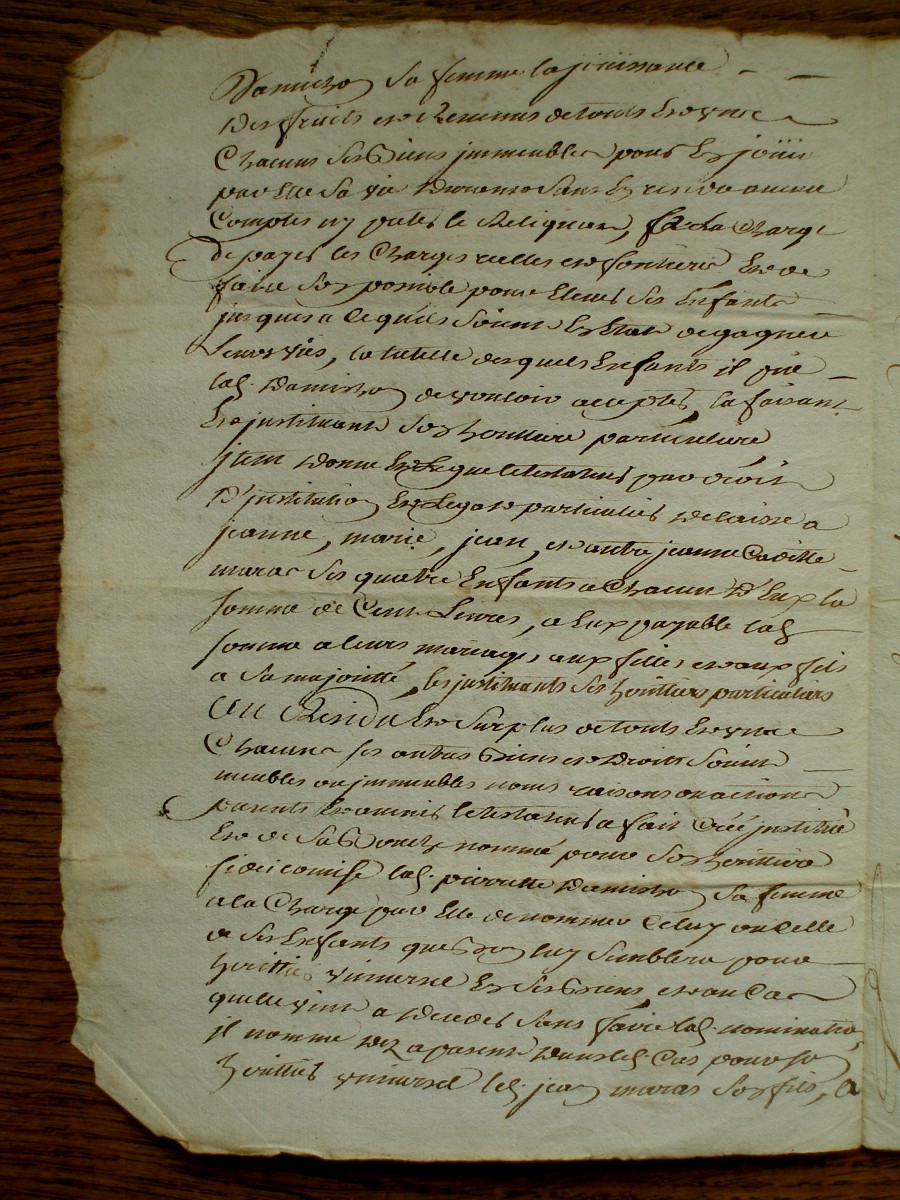 Damishon sa femme la jouissance
des fruits et Revenus de touts Et un
Chacuns ses Biens jmmeubles pour En joüir
par Elle sa vie Durant sans En rendre aucun
Comptes ny paier le Reliquat, a la Charge
de payer les Charges reelles et fontieres Et de
faire son possible pour Elever ses Enfants
jusques a Ce quils soient En Etat de gagner
Leurs vies, la tutelle desquels Enfants il prie
lad. Damishon de vouloir accepter, la faisant
Et justituant son herittiere particuliere
jtem donne Et Legue le testateur par droit
D'justitution Et Legat particulier delaisse a
jeanne, marie, jean, et autre jeanne Cadette
maras ses quatre Enfants a Chacun D'Eux la
somme de Cent Livres, a Eux payable lad.
somme a leurs mariages aux filles et aux fils
a sa majorité, les justituants ses herittiers particuliers
Au Residu Et surplus de touts Et un
Chacuns ses autres Biens et Droits soient
meubles ou jmmeubles noms raisons ou actions
presents Et avenir le testateur a fait Créé justitué
Et de sa Bouche nommé pour son herittiere
fideicomise lad. pierrette Damishon sa femme
a la Charge par Elle de nommer Celuy ou Celle
de ses Enfants que Bon luy semblera pour
herittier universel En ses Biens et au Cas
quelle vint a deceder sans faire lad. nomination
il nomme dez a present dans led. Cas pour son
herittier universel led. jean maras son fils, a